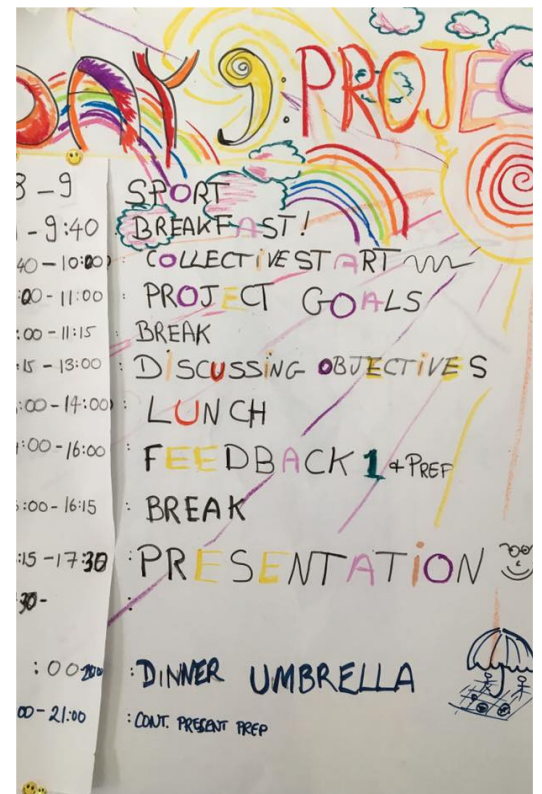 DAY 9: PROJEC
8 - 9 SPORT
- 9:40 BREAKFAST!
40 - 10:00) : COLLECTIVE START
:00 - 11:00 : PROJECT GOALS
:00 - 11:15 : BREAK
:15 - 13:00 : DISCUSSING OBJECTIVES
:00 - 14:00) : LUNCH
:00 - 16:00 : FEEDBACK 1 + PREP
:00 - 16:15 : BREAK
:15 - 17:30 : PRESENTATION
30 - :
:00 - 20:00 : DINNER UMBRELLA
00 - 21:00 : CONT. PRESENT PREP